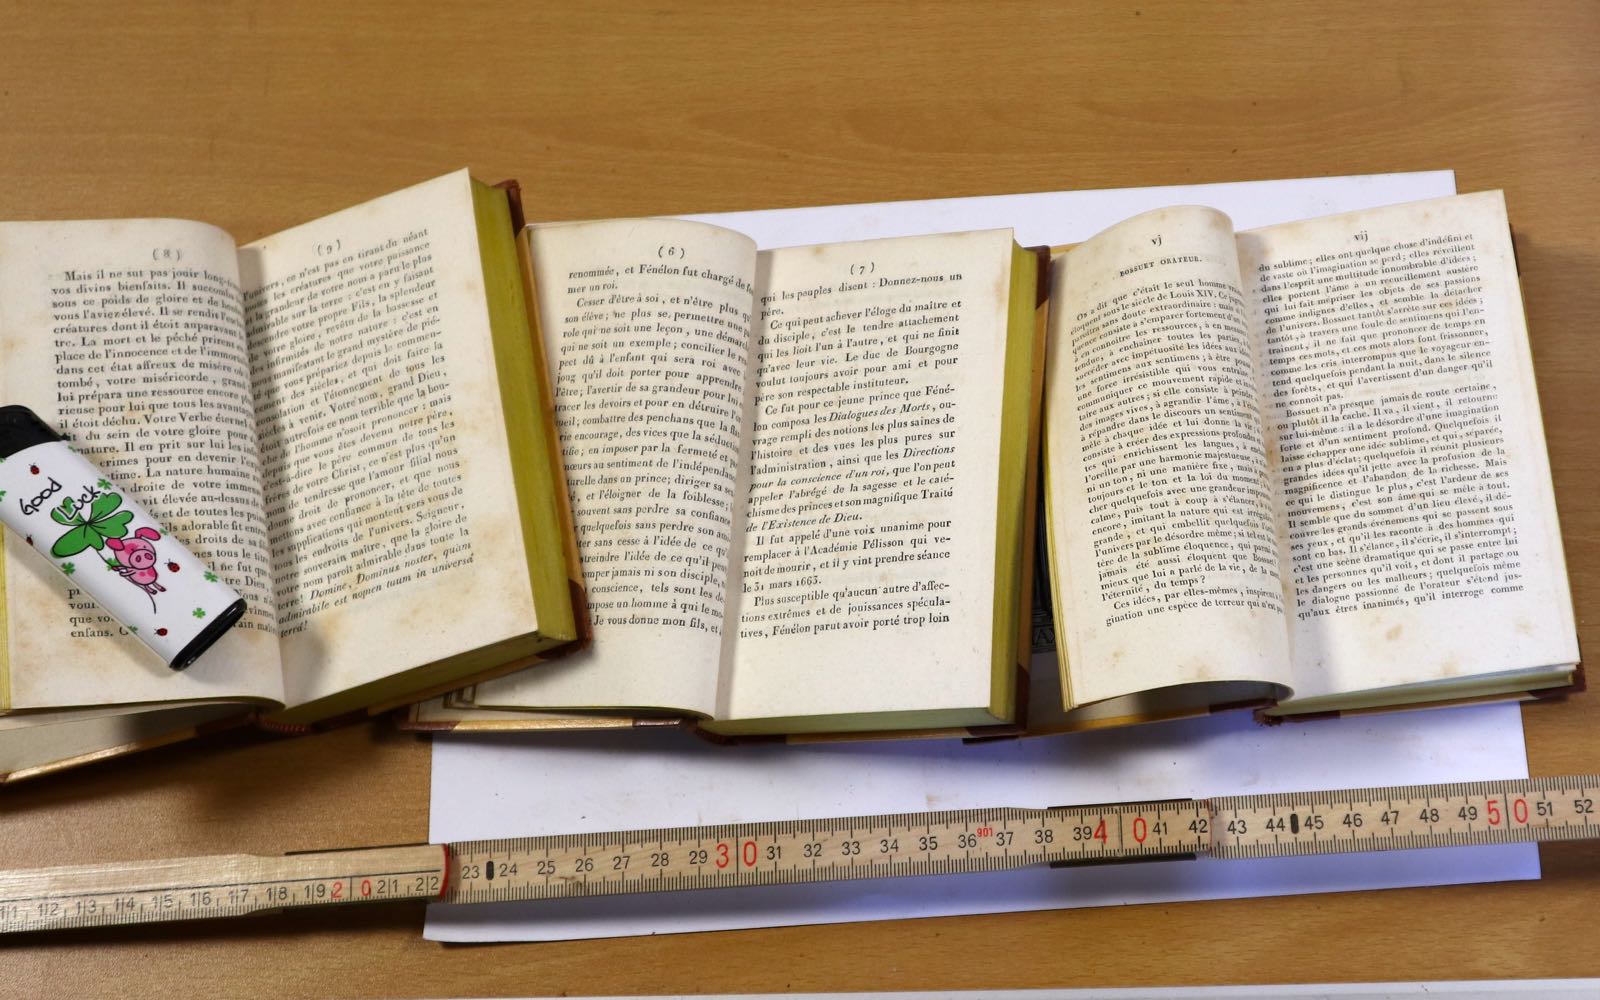 ( 8 )
Mais il ne sut pas jouir long-
vos divins bienfaits. Il succomba
sous ce poids de gloire et de
vous l'aviez élevé. Il se rendit l'
créatures dont il étoit auparavant
tre. La mort et le péché prirent
place de l'innocence et de l'immor
dans cet état affreux de misère où
tombé, votre miséricorde, grand
lui prépara une ressource encore plus
rieuse pour lui que tous les avanta
il étoit déchu. Votre Verbe éternel
du sein de votre gloire pour
nature. Il en prit sur lui les
crimes pour en devenir l'ex
time. La nature humaine
droite de votre immen
vit élevée au-dessus de
s et de toutes les puis
ils adorable fit entre
s droits de sa fi
nes tous le tim
il ne fut que
tre Dieu
pl
voul
que vo
enfans. C
Good
Luck
( 9 )
l'univers, ce n'est pas en tirant du néant
les créatures que votre puissance
grandeur de votre nom a paru le plus
admirable sur la terre : c'est en y faisant
descendre votre propre Fils, la splendeur
votre gloire, revêtu de la bassesse et
infirmités de notre nature : c'est en
nous manifestant le grand mystère de pié-
que vous prépariez depuis le commen-
des siècles, et qui doit faire la
consolation et l'étonnement de tous les
siècles à venir. Votre nom, grand Dieu,
autrefois ce nom terrible que la bou-
de l'homme n'osoit prononcer ; mais
depuis que vous êtes devenu notre père,
c'est-à-dire le père commun de tous les
frères de votre Christ, ce n'est plus qu'un
nom de tendresse que l'amour filial nous
donne droit de prononcer, et que nous
mettons avec confiance à la tête de toutes
les supplications qui montent vers vous de
tous les endroits de l'univers. Seigneur,
notre souverain maître, que la gloire de
votre nom paroît admirable dans toute la
terre! Domine, Dominus noster, quàm
admirabile est nomen tuum in universâ
terrâ!
( 6 )
renommée, et Fénélon fut chargé de fo
mer un roi.
Cesser d'être à soi, et n'être plus qu'
son élève; ne plus se permettre une pa
role qui ne soit une leçon, une démarch
qui ne soit un exemple; concilier le res
pect dû à l'enfant qui sera roi avec
joug qu'il doit porter pour apprendre
l'être; l'avertir de sa grandeur pour lui
tracer les devoirs et pour en détruire l'or
gueil; combattre des penchans que la fla
rie encourage, des vices que la séductio
tifie; en imposer par la fermeté et p
mœurs au sentiment de l'indépendan
urelle dans un prince; diriger sa sen
é, et l'éloigner de la foiblesse;
souvent sans perdre sa confiance
quelquefois sans perdre son ami
ter sans cesse à l'idée de ce qu'
streindre l'idée de ce qu'il peut
omper jamais ni son disciple,
conscience, tels sont les de
mpose un homme à qui le mo
: Je vous donne mon fils, et
( 7 )
qui les peuples disent : Donnez-nous un
père.
Ce qui peut achever l'éloge du maître et
du disciple, c'est le tendre attachement
qui les lioit l'un à l'autre, et qui ne finit
qu'avec leur vie. Le duc de Bourgogne
voulut toujours avoir pour ami et pour
père son respectable instituteur.
Ce fut pour ce jeune prince que Féné-
lon composa les Dialogues des Morts, ou-
vrage rempli des notions les plus saines de
l'histoire et des vues les plus pures sur
l'administration, ainsi que les Directions
pour la conscience d'un roi, que l'on peut
appeler l'abrégé de la sagesse et le caté-
chisme des princes et son magnifique Traité
de l'Existence de Dieu.
Il fut appelé d'une voix unanime pour
remplacer à l'Académie Pélisson qui ve-
noit de mourir, et il y vint prendre séance
le 31 mars 1663.
Plus susceptible qu'aucun autre d'affec-
tions extrêmes et de jouissances spécula-
tives, Fénélon parut avoir porté trop loin
vj
BOSSUET ORATEUR.
On a dit que c'était le seul homme vraim
éloquent sous le siècle de Louis XIV. Ce jugem
paraîtra sans doute extraordinaire : mais si
quence consiste à s'emparer fortement d'
à en connoître les ressources, à en mesure
tendue, à enchaîner toutes les parties, à
succéder avec impétuosité les idées aux idées
les sentimens aux sentimens; à être poussé
une force irrésistible qui vous entraîne
communiquer ce mouvement rapide et
taire aux autres; si elle consiste à peindre
des images vives, à agrandir l'âme, à l'
à répandre dans le discours un sentiment
mêle à chaque idée et lui donne la vie
siste à créer des expressions profondes et
tes qui enrichissent les langues, à en
l'oreille par une harmonie majestueuse, à
ni un ton, ni une manière fixe, mais
toujours et le ton et la loi du moment
cher quelquefois avec une grandeur impos
calme, puis tout à coup s'élancer, s'
encore, imitant la nature qui est irrégul
grande, et qui embellit quelquefois l'
l'univers par le désordre même; si tel est le
tère de la sublime éloquence, qui parmi
jamais été aussi éloquent que Bossuet?
mieux que lui a parlé de la vie, de la mort
l'éternité, du temps?
Ces idées, par elles-mêmes, inspirent
gination une espèce de terreur qui n'est pas
vij
du sublime; elles ont quelque chose d'indéfini et
de vaste où l'imagination se perd; elles réveillent
dans l'esprit une multitude innombrable d'idées;
elles portent l'âme à un recueillement austère
qui lui fait mépriser les objets de ses passions
comme indignes d'elles, et semble la détacher
de l'univers. Bossuet tantôt s'arrête sur ces idées;
tantôt, à travers une foule de sentimens qui l'en-
traînent, il ne fait que prononcer de temps en
temps ces mots, et ces mots alors font frissonner,
comme les cris interrompus que le voyageur en-
tend quelquefois pendant la nuit, dans le silence
des forêts, et qui l'avertissent d'un danger qu'il
ne connoît pas.
Bossuet n'a presque jamais de route certaine,
ou plutôt il la cache. Il va, il vient, il retourne
sur lui-même : il a le désordre d'une imagination
forte et d'un sentiment profond. Quelquefois il
laisse échapper une idée sublime, et qui, séparée,
en a plus d'éclat; quelquefois il réunit plusieurs
grandes idées qu'il jette avec la profusion de la
magnificence et l'abandon de la richesse. Mais
ce qui le distingue le plus, c'est l'ardeur de ses
mouvemens, c'est son âme qui se mêle à tout.
Il semble que du sommet d'un lieu élevé, il dé-
couvre les grands événemens qui se passent sous
ses yeux, et qu'il les raconte à des hommes qui
sont en bas. Il s'élance, il s'écrie, il s'interrompt;
c'est une scène dramatique qui se passe entre lui
et les personnes qu'il voit, et dont il partage ou
les dangers ou les malheurs; quelquefois même
le dialogue passionné de l'orateur s'étend jus-
qu'aux êtres inanimés, qu'il interroge comme
11 12 13 14 15 16 17 18 19 20 21 22 23 24 25 26 27 28 29 30 31 32 33 34 35 36 901 37 38 39 40 41 42 43 44 45 46 47 48 49 50 51 52